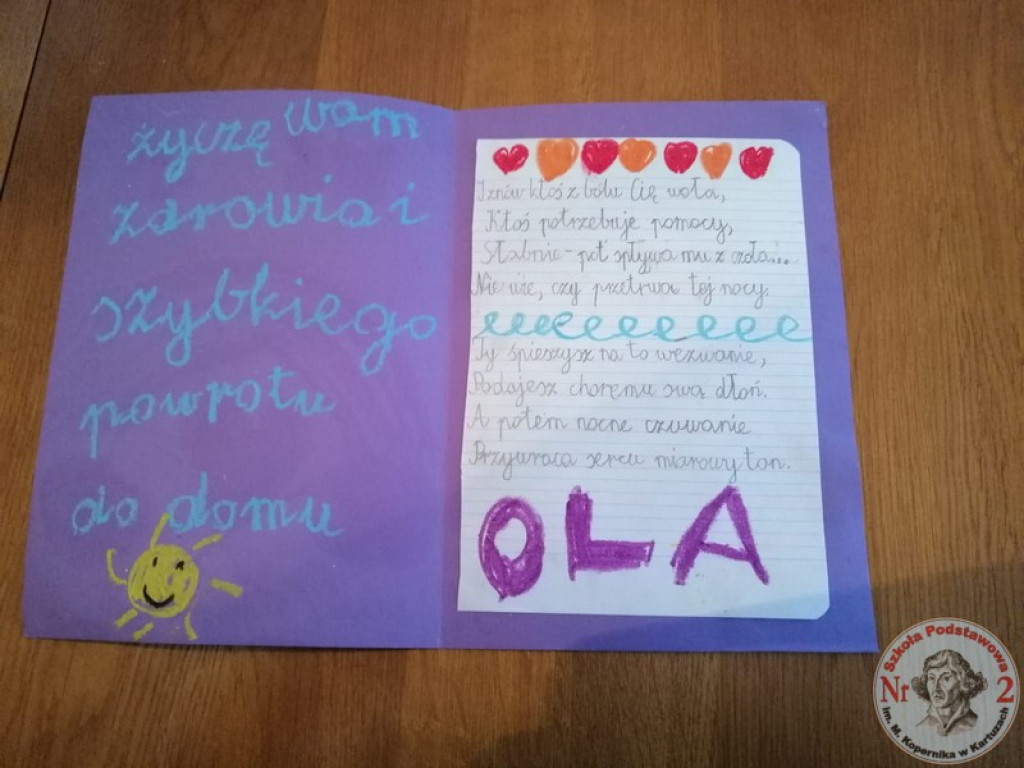 życzę wam
zdrowia i
szybkiego
powrotu
do domu
I znów ktoś z bólu Cię woła,
Ktoś potrzebuje pomocy,
Słabnie - pot spływa mu z czoła...
Nie wie, czy przetrwa tej nocy.
Ty śpieszysz na to wezwanie,
Podajesz choremu swą dłoń.
A potem nocne czuwanie
Przywraca sercu miarowy ton.
OLA
Szkoła Podstawowa
Nr 2
im. M. Kopernika w Kartuzach